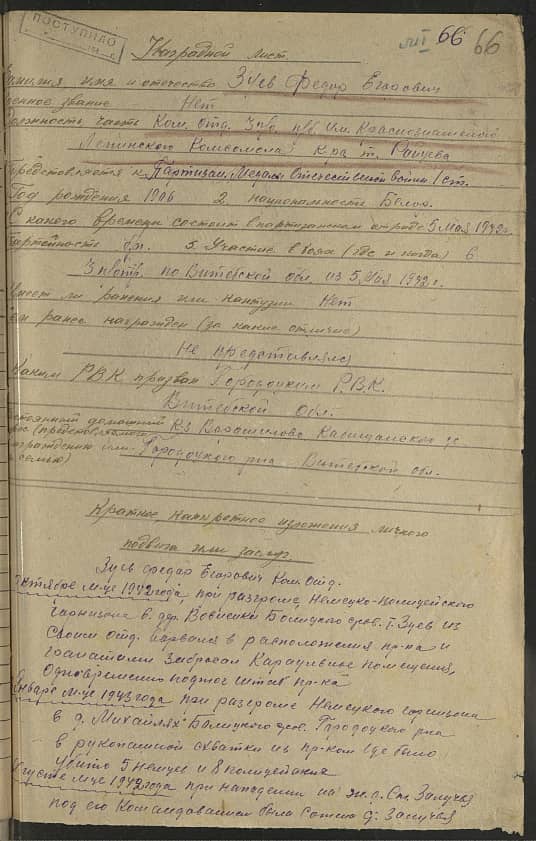 ПОСТУПИЛО
ЛИІ 66 66
Наградной лист.
Фамилия имя и отечество Зуев Федор Егорович
Военное звание Нет
Должность часть Ком. отд. 3 п/о, п/б. им. Краснознаменного
Ленинского Комсомола К-ра т. Райцева
Представляется к Партизан. Медали Отечественной войны I ст.
Год рождения 1906 2 национальность Белор.
С какого времени состоит в партизанском отряде 5 Мая 1942 г.
Партийность б/п. 5 Участие в боях (где и когда) в
3 п/отр. по Витебской обл. из 5 Мая 1942 г.
Имеет ли ранения или контузии Нет
Чем ранее награжден (за какие отличие)
Не представлялся
Каким РВК призван Городоцким Р.В.К.
Витебской обл.
Постоянный домашний
адрес (представляемого К-з Варашилова с/с
награждению или Городоцкого р-на Витебской обл.
семью)
Краткое, конкретное изложения личного
подвига или заслуг
Зуев Федор Егорович Ком. Отд.
Октябре м-це 1942 года, при разгроме Немецко-Полицейского
гарнизона в дер. т. Зуев из
своим отд. ворвался в расположения пр-ка и
гранатами забросал Караульные помещения,
Одновременно поджог штаб пр-ка
Январе м-це 1943 года при разгроме Немецкого гарнизона
в д. Михайлях Городоцкого р-на
в рукопашной схватки из пр-ком где было
убито 5 немцев и 8 полицейския
Августе м-це 1942 года при нападении на ж.д. Ст. Залучья
под его Командованием была д. Залучья